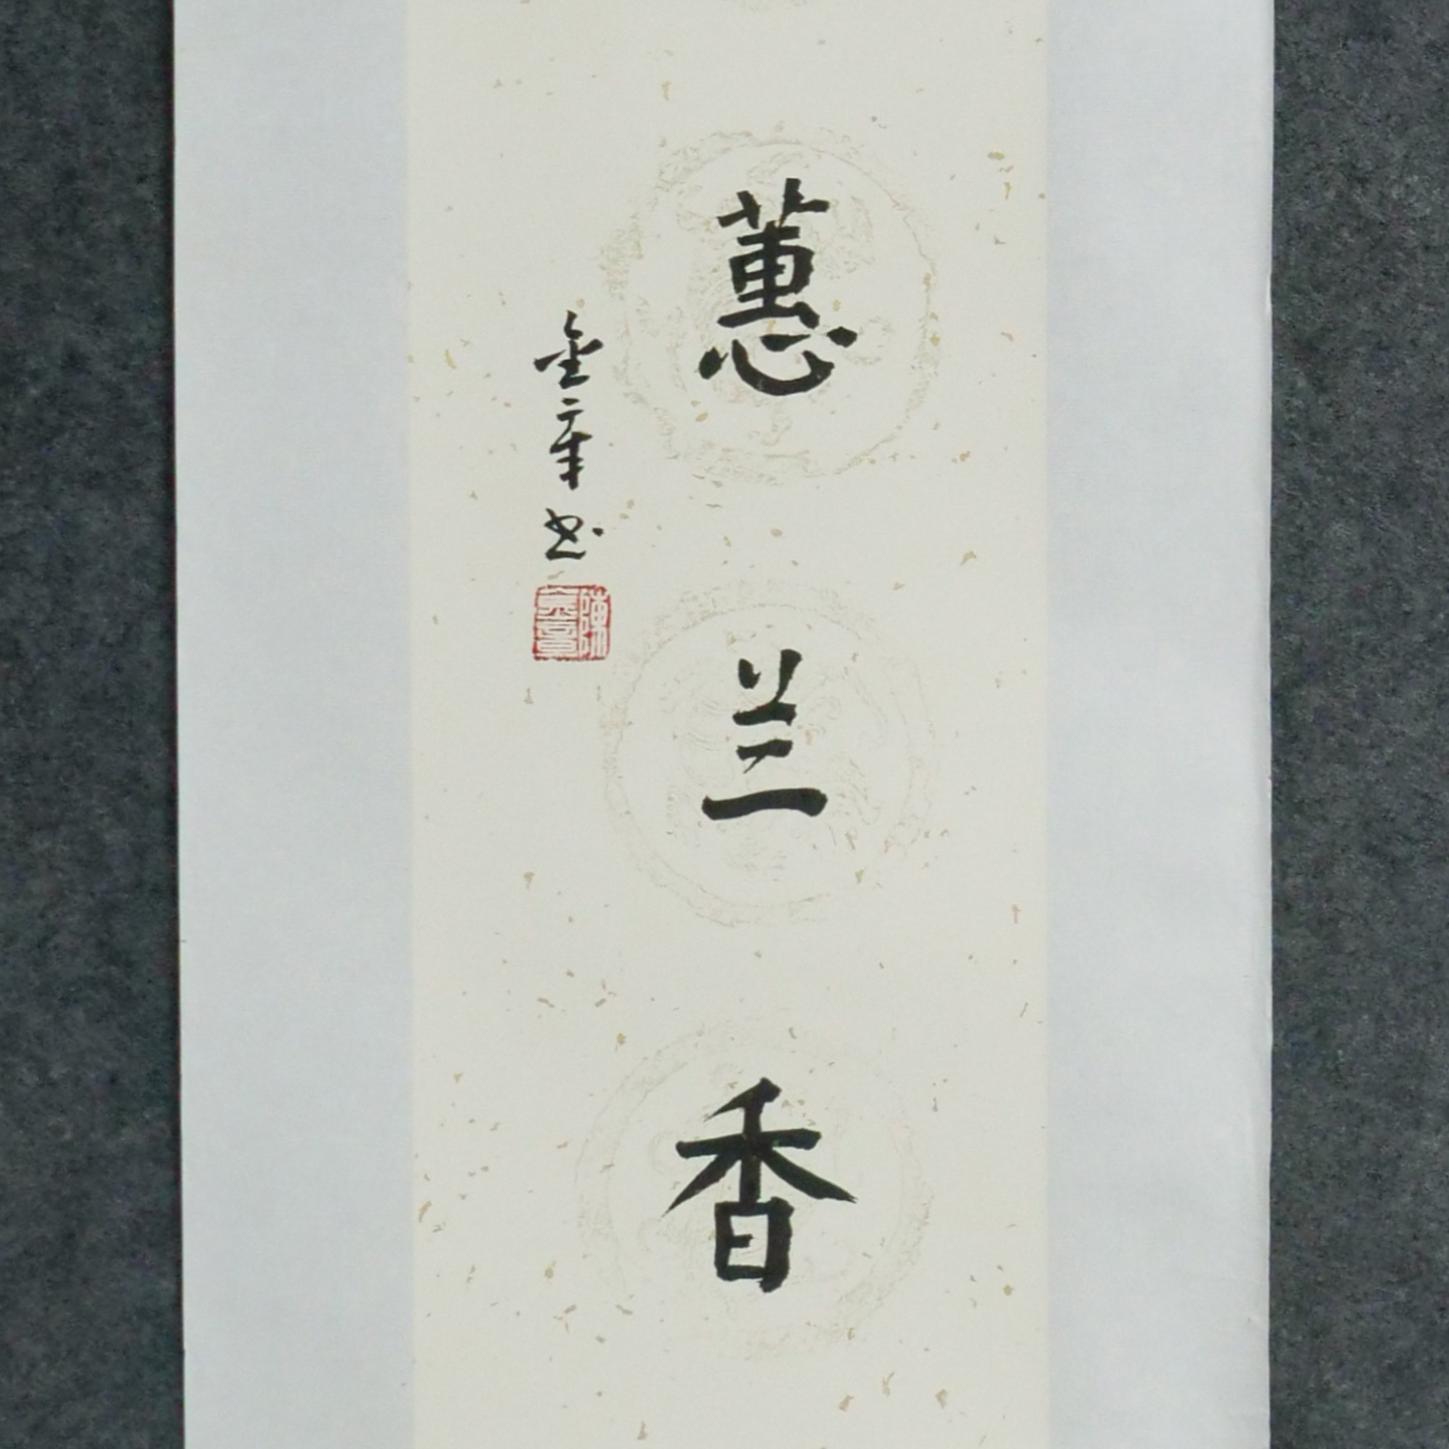 蕙
兰
香
金章书